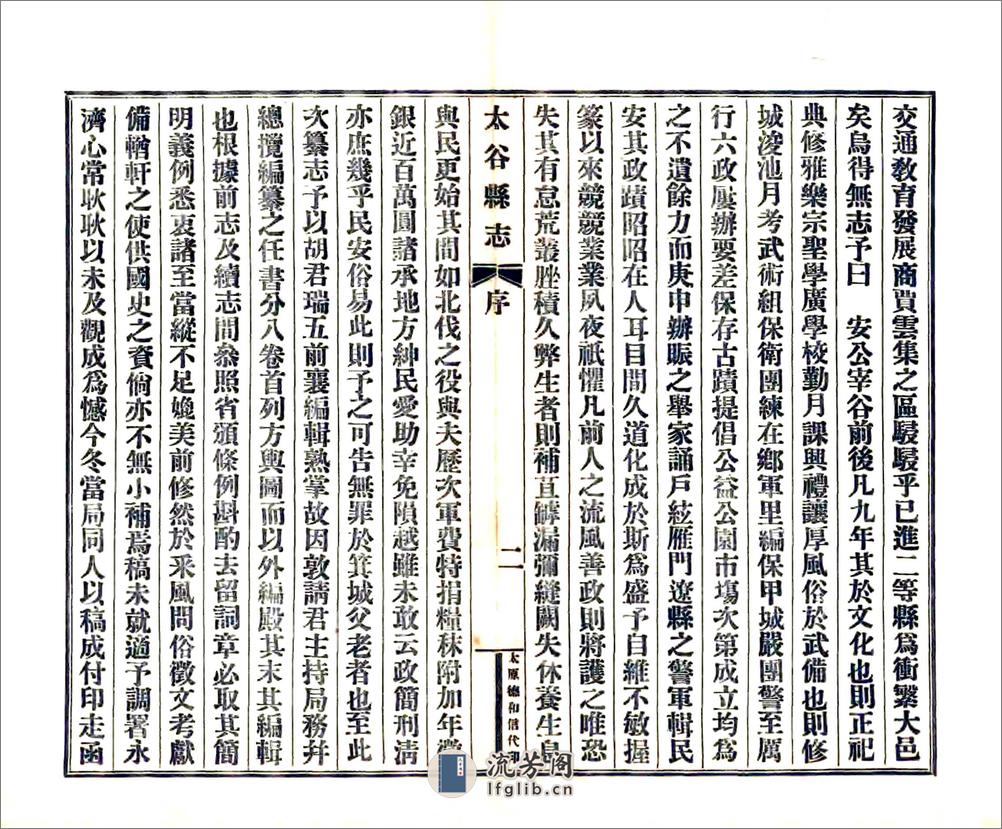 交通敎育發展商賈雲集之區駸駸乎已進二等縣爲衝繁大邑
矣烏得無志予曰　安公宰谷前後凡九年其於文化也則正祀
典修雅樂宗聖學廣學校勤月課興禮讓厚風俗於武備也則修
城浚池月考武術組保衛團練在鄕軍里編保甲城嚴團警至厲
行六政屢辦要差保存古蹟提倡公益公園市塲次第成立均爲
之不遺餘力而庚申辦賑之舉家誦戶絃雁門遼縣之警軍輯民
安其政蹟昭昭在人耳目間久道化成於斯爲盛予自維不敏握
篆以來競競業業夙夜祇懼凡前人之流風善政則將護之唯恐
失其有怠荒叢脞積久弊生者則補苴罅漏彌縫闕失休養生息
太谷縣志
序
二
太原德和信代印
與民更始其間如北伐之役與夫歷次軍費特捐糧秣附加年徵
銀近百萬圓諸承地方紳民愛助幸免隕越雖未敢云政簡刑淸
亦庶幾乎民安俗易此則予之可告無罪於箕城父老者也至此
次纂志予以胡君瑞五前襄編輯熟掌故因敦請君主持局務幷
總攬編纂之任書分八卷首列方輿圖而以外編殿其末其編輯
也根據前志及續志間叅照省頒條例斟酌去留詞章必取其簡
明義例悉衷諸至當縱不足媲美前修然於采風問俗徵文考獻
備輶軒之使供國史之資倘亦不無小補焉稿未就適予調署永
濟心常耿耿以未及觀成爲憾今冬當局同人以稿成付印走函
流芳阁
lfglib.cn